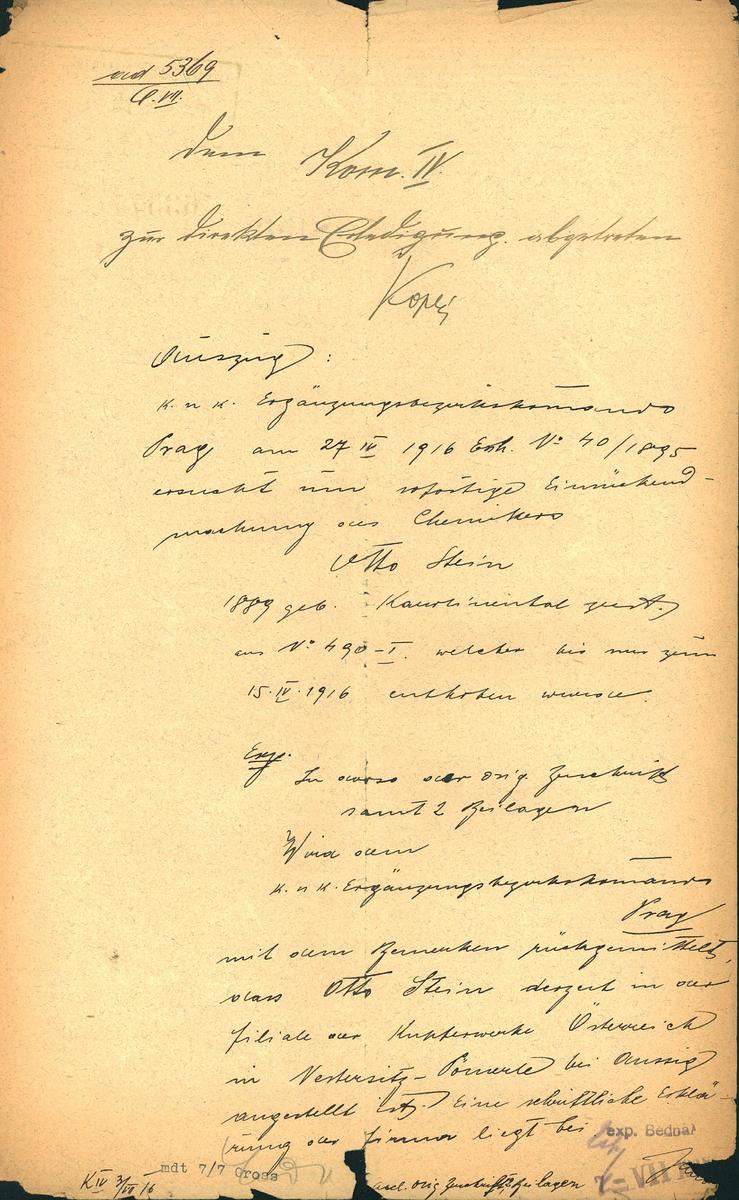 ad 5369
dem Kom. IV.
zur direkten Erledigung abgetreten
Auszug:
k. u k. Ergänzungsbezirkskomando
Prag am 27 IV 1916 Erh. No 40/1895
ersucht um sofortige Einrückend-
machung des Chemikers
Otto Stein
1889 geb. Karolinental zust.
aus No 490-I. welcher bis nur zum
15.IV.1916 enthoben wurde.
Exp.
In dorso der orig. Zuschrift
samt 2 Beilagen
Wird dem
k. u k. Ergänzungsbezirkskomando
Prag
mit dem Bemerken rückgemittelt,
dass Otto Stein derzeit in der
Filiale der Kupferwerke Österreich
in Nestersitz-Pömerle bei Aussig
angestellt ist. Eine schriftliche Erklä-
rung der Firma liegt bei
exp. Bednař
mdt 7/7 Gross
orig. Zuschrift, 2 Beilagen
K IV